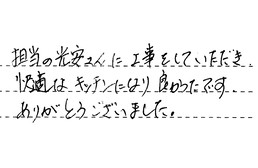 担当の光安さんに工事をしていただき
快適なキッチンになり良かったです。
ありがとうございました。